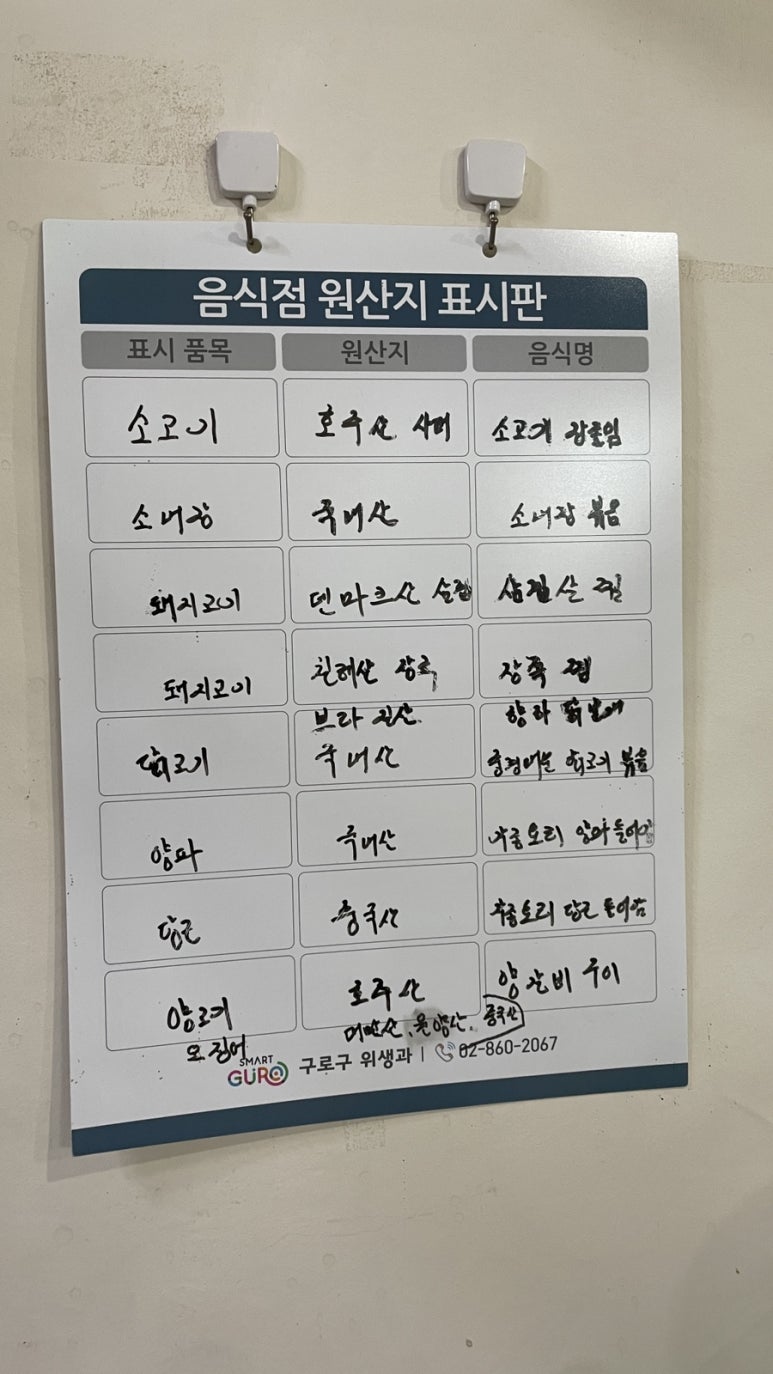 음식점 원산지 표시판
표시 품목 원산지 음식명
소고기 호주산 사태 소고기 장조림
소내장 국내산 소내장 볶음
돼지고기 덴마크산 삼겹 삼겹살 찜
돼지고기 칠레산 장족 장족 찜
브라질산
닭고기 국내산 닭고기 볶음
양파 국내산
당근 중국산
양고기 호주산 양갈비 구이
오징어 대만산, 원양산, 중국산
SMART
GURO 구로구 위생과 | 02-860-2067